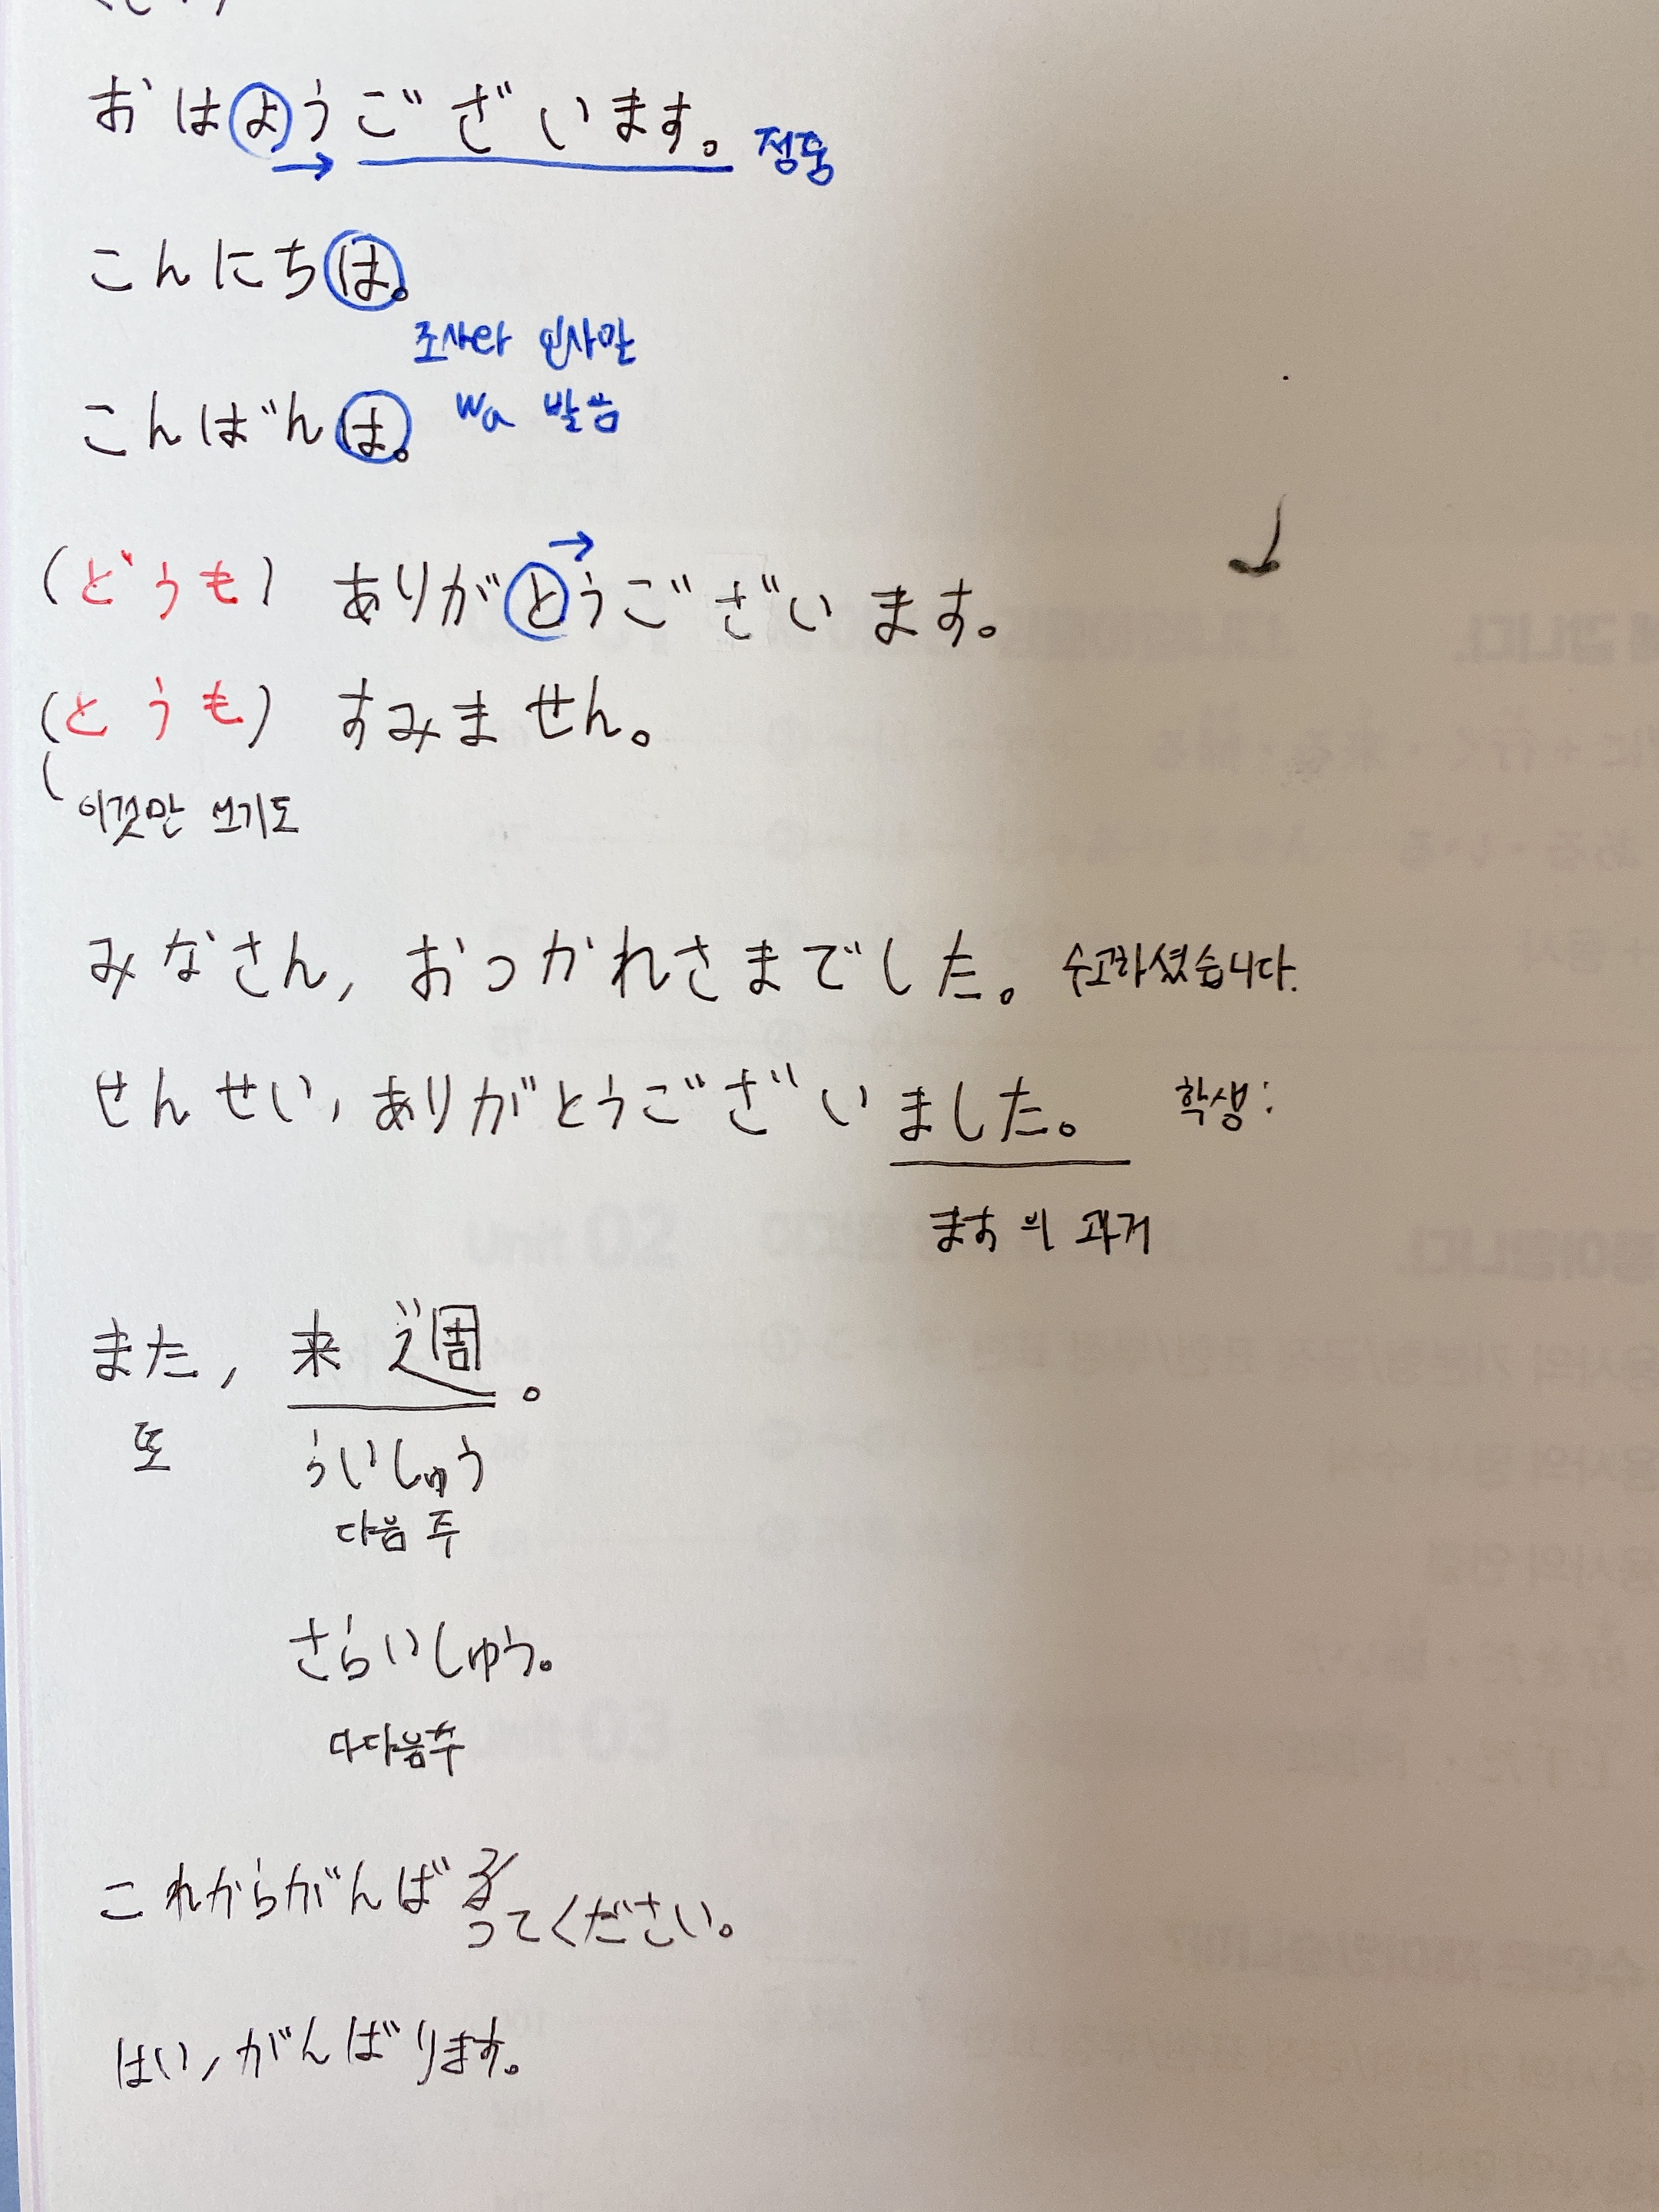 おはようございます。 정중
こんにちは。
조사와 인사말
こんばんは。 wa 발음
(どうも) ありがとうございます。
(とうも) すみません。
이것만 쓰기도
みなさん, おつかれさまでした。 수고하셨습니다.
せんせい, ありがとうございました。 학생:
ます의 과거
また, 来週。
또 らいしゅう
다음 주
さらいしゅう。
다다음주
これからがんばってください。
はい, がんばります。